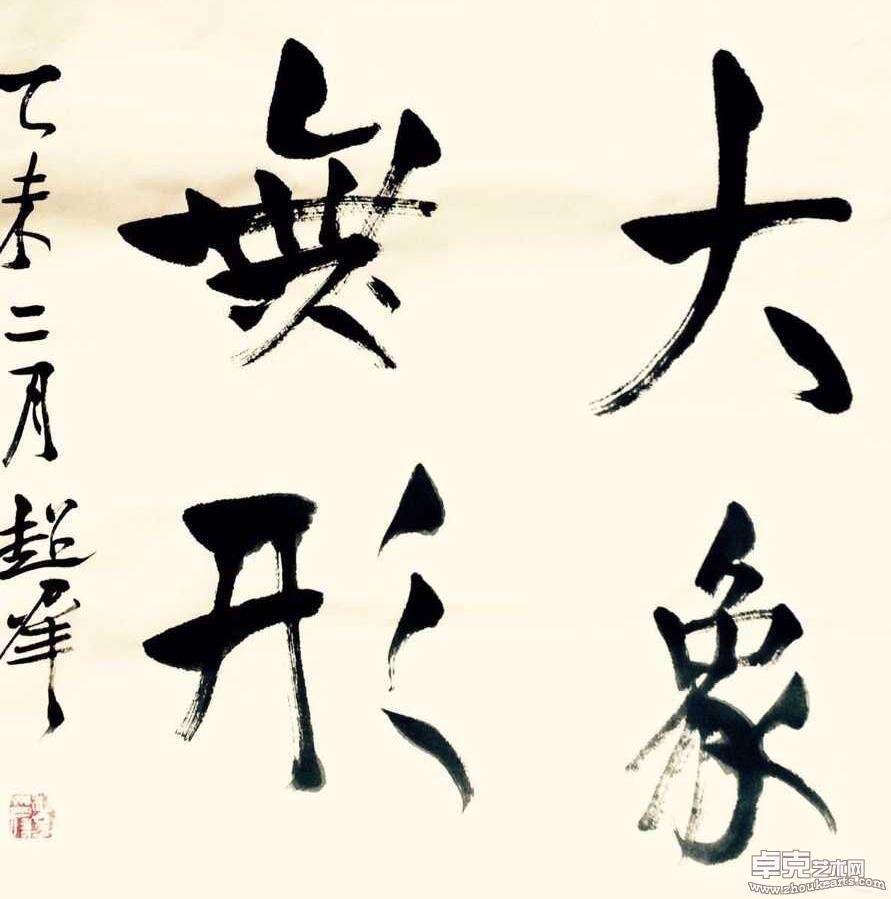 大象
無形
乙未二月超峯
卓克艺术网
www.zhoukearts.com